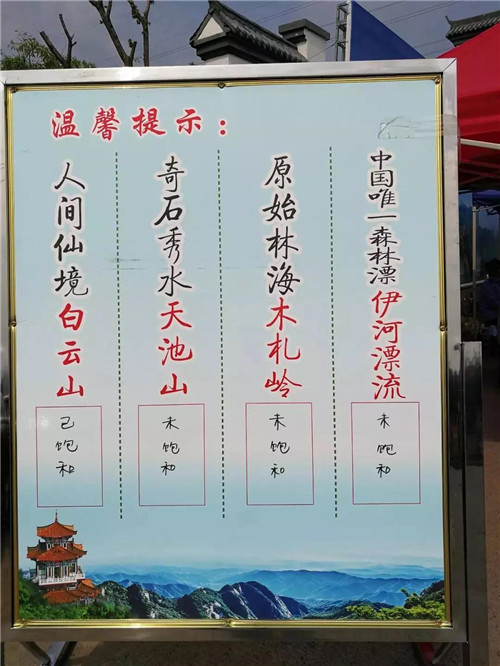 温馨提示：
人间仙境白云山
奇石秀水天池山
原始林海木札岭
中国唯一森林漂伊河漂流
已饱和
未饱和
未饱和
未饱和